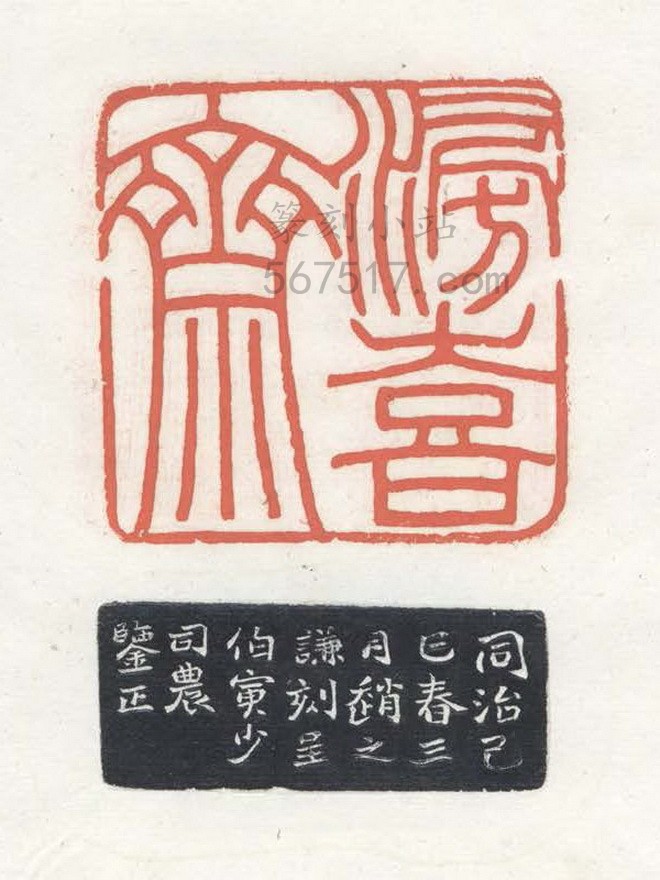 滂喜
齋
篆刻小站
567517.com
同治己
巳春三
月趙之
謙刻呈
伯寅少
司農
鑒正